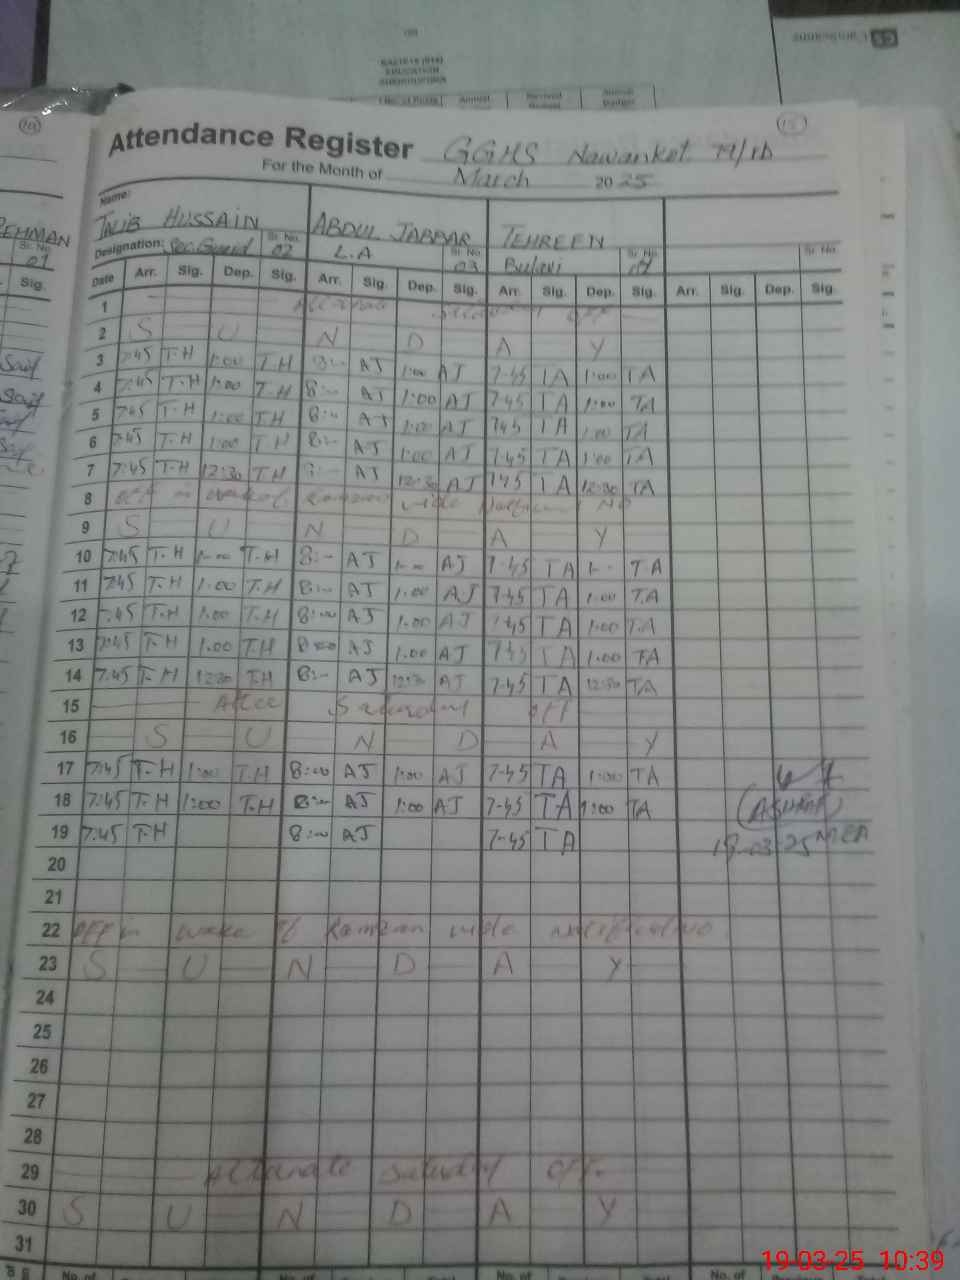 Attendance Register GGHS Nawankot
For the Month of March 2025
Name:
TALIB HUSSAIN ABDUL JABBAR TEHREEN
Designation: Sec. Guard Sr. No. 02 L.A Sr. No. 03 Bulavi Sr. No. Sr. No.
Date Arr. Sig. Dep. Sig. Arr. Sig. Dep. Sig. Arr. Sig. Dep. Sig. Arr. Sig. Dep. Sig.
1 Alternate Saturday OFF
2 S U N D A Y
3 7:45 T.H 1:00 T.H 8:- AJ 1:00 AJ 7-45 TA 1:00 TA
4 7:45 T.H 1:00 T.H 8:- AJ 1:00 AJ 7-45 TA 1:00 TA
5 7:45 T.H 1:00 T.H 8:- AJ 1:00 AJ 745 TA 1:00 TA
6 7:45 T.H 1:00 T.H 8:- AJ 1:00 AJ 7-45 TA 1:00 TA
7 7:45 T.H 12:30 T.H 8:- AJ 12:30 AJ 745 TA 12:30 TA
8 OFF in wake of Ramzan vide No
9 S U N D A Y
10 7:45 T.H 1:00 T.H 8:- AJ 1:00 AJ 7-45 TA 1:- T.A
11 7:45 T.H 1.00 T.H 8:- AJ 1.00 AJ 7-45 TA 1.00 T.A
12 7:45 T.H 1.00 T.H 8:00 AJ 1.00 AJ 7-45 TA 1.00 T.A
13 7:45 T.H 1.00 T.H 8:00 AJ 1.00 AJ 7-45 TA 1:00 TA
14 7:45 T.H 12:30 T.H 8:- AJ 12:30 AJ 7-45 TA 12:30 TA
15 Saturday off
16 S U N D A Y
17 7:45 T.H 1:00 T.H 8:00 AJ 1:00 AJ 7-45 TA 1:00 TA
18 7:45 T.H 1:00 T.H 8:- AJ 1:00 AJ 7-45 TA 1:00 TA
(ASHRAF)
19 7:45 T.H 8:00 AJ 7-45 TA
-03-25 MEA
20
21
22 OFF in wake of Ramzan vide notification
23 S U N D A Y
24
25
26
27
28
29 Alternate Saturday OFF.
30 S U N D A Y
31
19-03-25 10:39